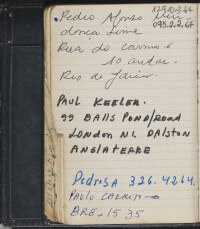 Pedro Afonso Men-
donça Lima
Rua do Carmo 6
10 andar.
Rio de Janeiro.
PAUL KEELER.
99 BALLS POND/ROAD
LONDON N1. DALSTON
ANGLATERRE
Pedrosa 326.4264.
PAULO
BRE - 15 35